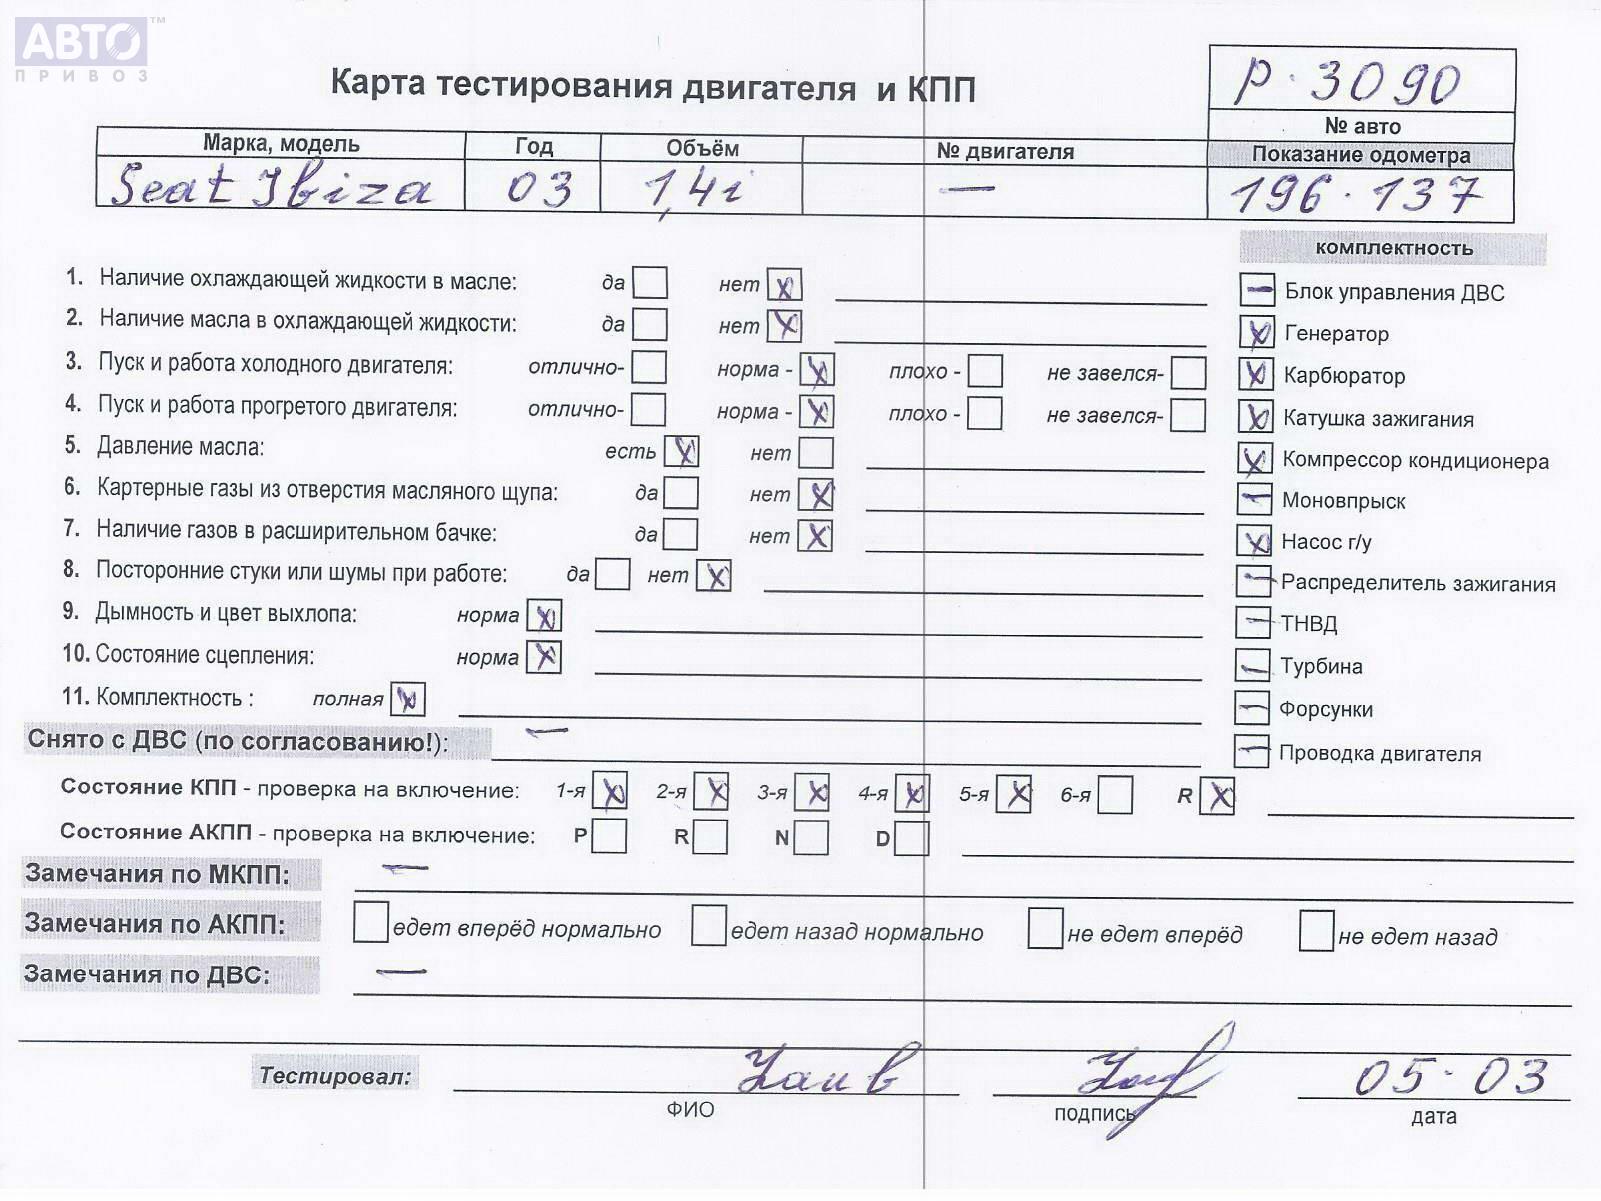 АВТО™
ПРИВОЗ
Карта тестирования двигателя и КПП
р. 3090
№ авто
Марка, модель Год Объём № двигателя Показание одометра
Seat Ibiza 03 1,4i — 196.137
комплектность
1. Наличие охлаждающей жидкости в масле: да нет x
2. Наличие масла в охлаждающей жидкости: да нет x
3. Пуск и работа холодного двигателя: отлично- норма - x плохо - не завелся-
4. Пуск и работа прогретого двигателя: отлично- норма - x плохо - не завелся-
5. Давление масла: есть x нет
6. Картерные газы из отверстия масляного щупа: да нет x
7. Наличие газов в расширительном бачке: да нет x
8. Посторонние стуки или шумы при работе: да нет x
9. Дымность и цвет выхлопа: норма x
10. Состояние сцепления: норма x
11. Комплектность : полная x
— Блок управления ДВС
x Генератор
x Карбюратор
x Катушка зажигания
x Компрессор кондиционера
— Моновпрыск
x Насос г/у
— Распределитель зажигания
— ТНВД
— Турбина
— Форсунки
— Проводка двигателя
Снято с ДВС (по согласованию!): —
Состояние КПП - проверка на включение: 1-я x 2-я x 3-я x 4-я x 5-я x 6-я R x
Состояние АКПП - проверка на включение: P R N D
Замечания по МКПП: —
Замечания по АКПП: едет вперёд нормально едет назад нормально не едет вперёд не едет назад
Замечания по ДВС: —
Тестировал: 05.03
ФИО подпись дата